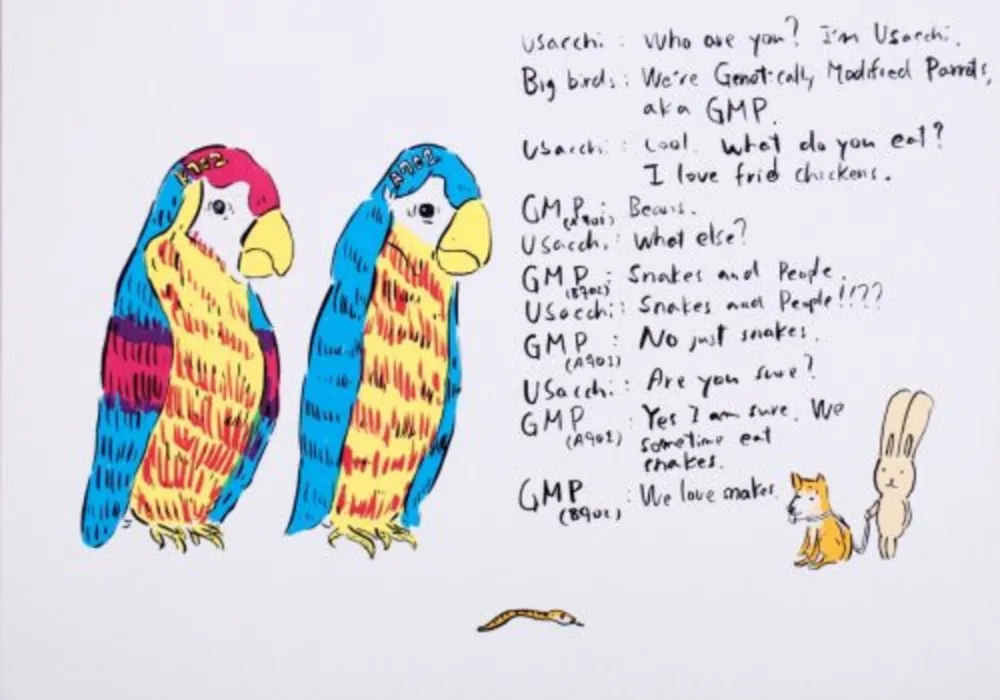 Usacchi : Who are you? I'm Usacchi.
Big birds : We're Genetically Modified Parrots,
aka GMP.
Usacchi : Cool. What do you eat?
I love frid chickens.
GMP (A901) : Beans.
Usacchi : What else?
GMP (B902) : Snakes and People.
Usacchi : Snakes and People!!??
GMP (A901) : No just snakes.
Usacchi : Are you sure?
GMP (A901) : Yes I am sure. We
sometime eat
snakes.
GMP (B902) : We love snakes.